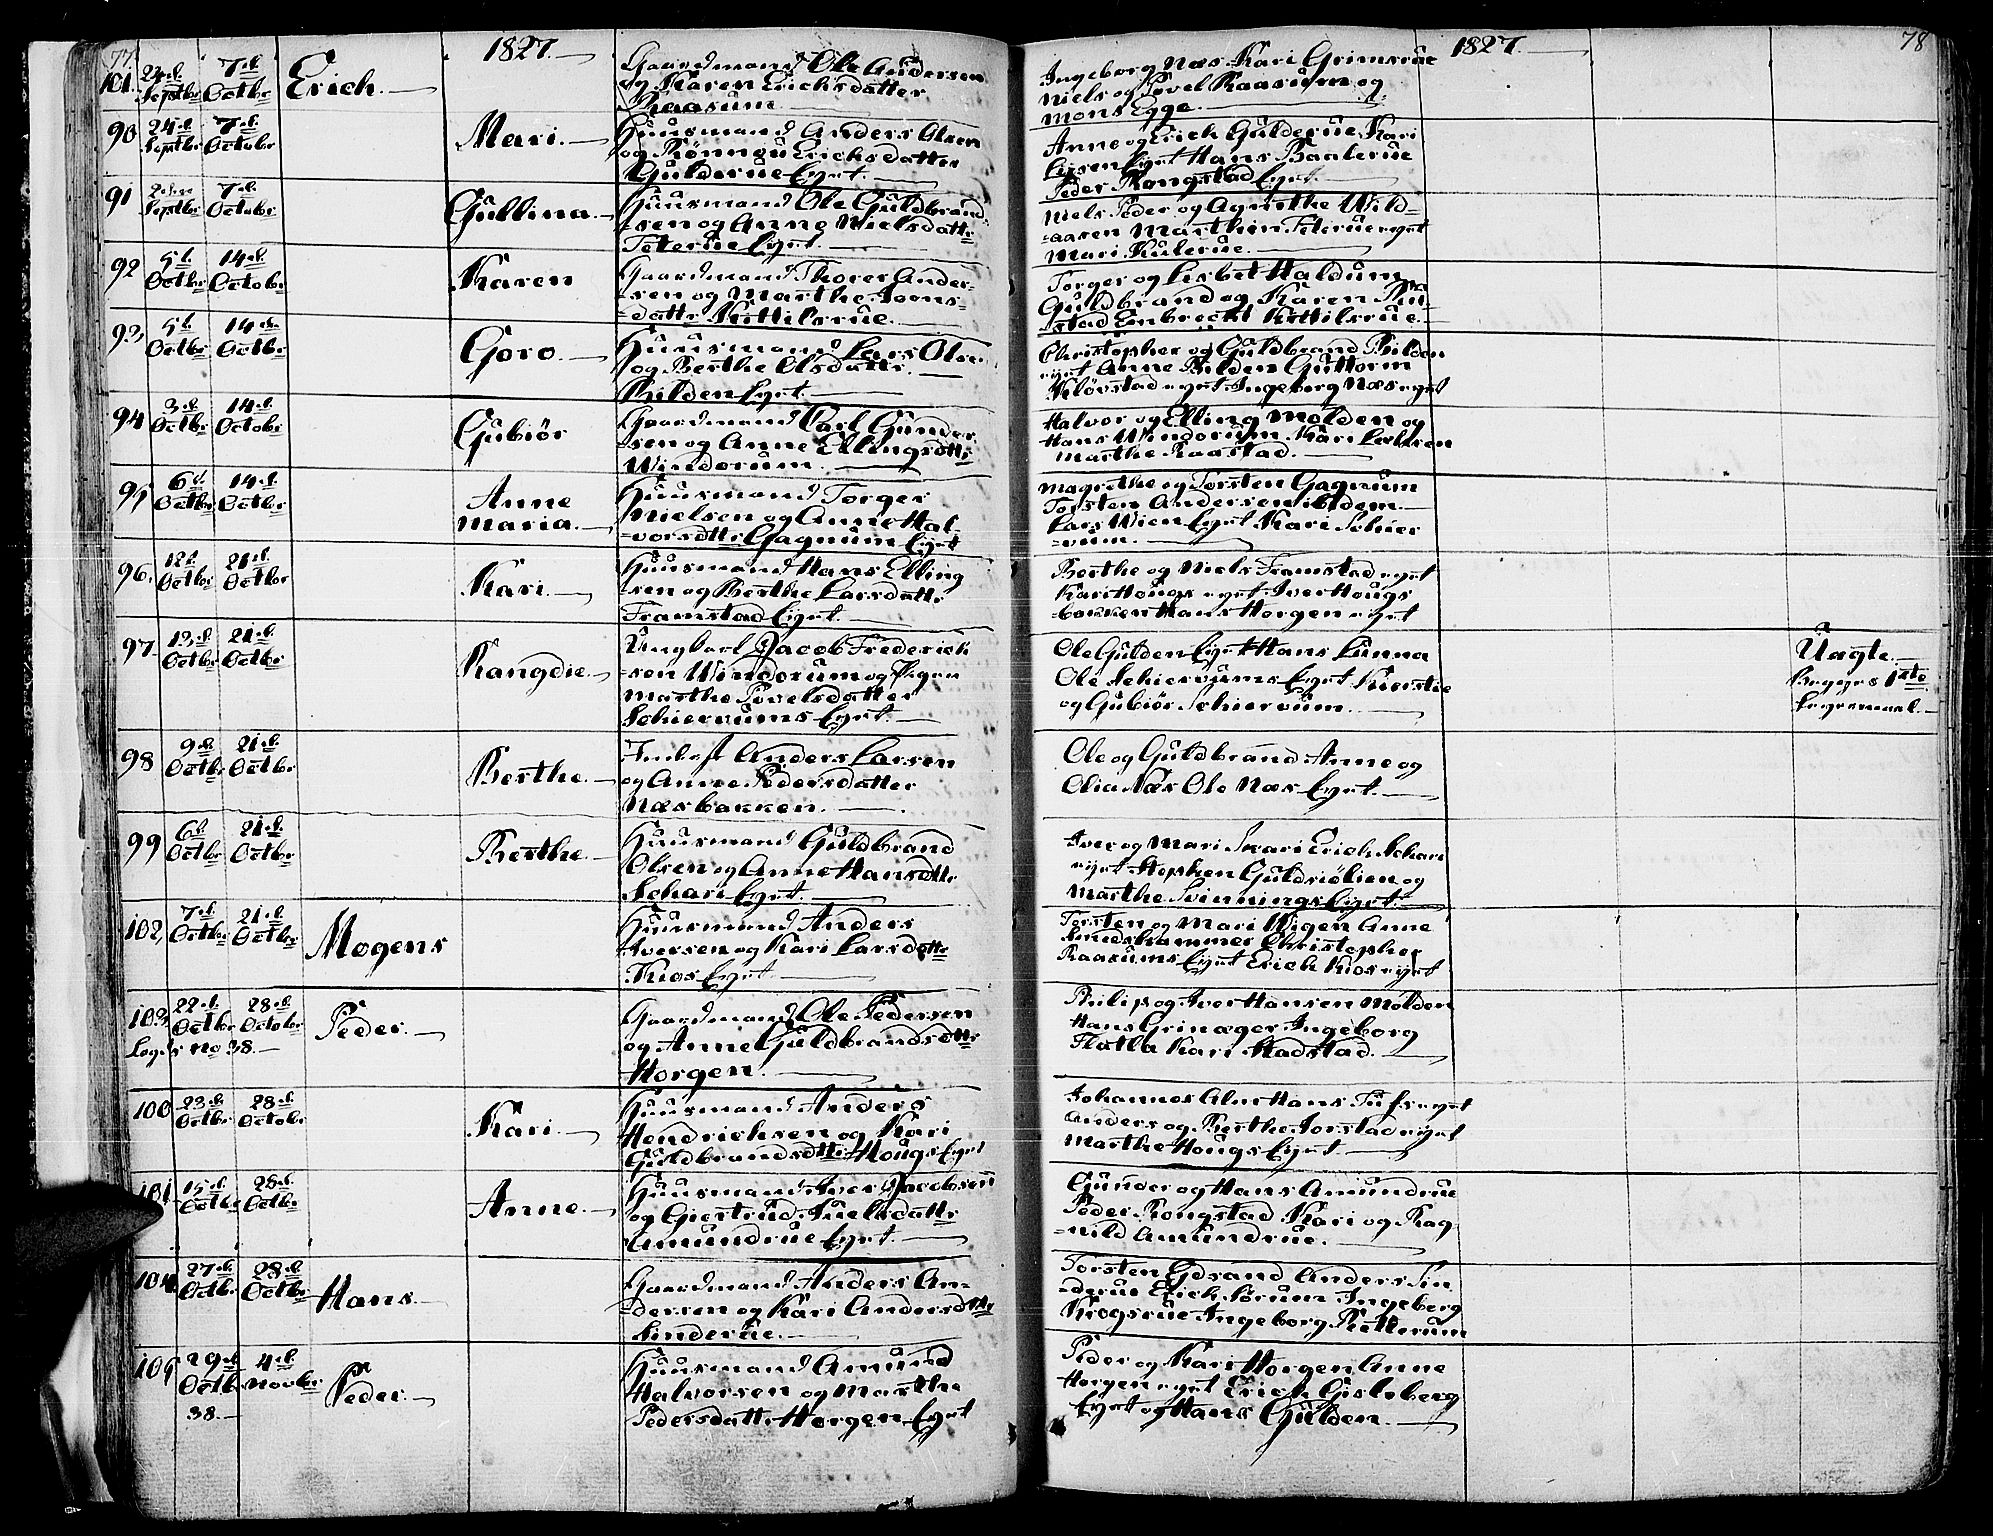 77.
1827.
101. 24.d. Septbr 7.d. Octbr Erich. Gaardmand Ole Andersen
og Karen Erichsdatter
Raasum.
90 24.d. Septbr 7.d. Octobr Mari. Huusmand Anders Olsen
og Rønnou Erichsdatter
Gulderue Eyet.
91 Septbr 7.d. Octobr Gullina. Huusmand Ole Guldbrand
-sen og Anne Nielsdattr
Teterue Eyet.
92 5.d. Octbr 14.d. Octobr Karen Gaardmand Thorer Ander-
-sen og Marthe Joens-
-dattr Kittilsrue.
93, 5.d. Octbr 14.d. Octbr Goro. Huusmand Lars Olse
og Berthe Olsdattr.
Bilden Eyet.
94 3.d. Octbr 14.d. Octobr Gubiör Gaardmand Carl Gunder
-sen og Anne Ellingsdttr
Windorum.
95 6.d. Octbr 14.d. Octbr Anne
Maria. Huusmand Torger
Nielsen og Anne Hal-
-vorsdttr Gagnum Eyet
96. 12.d. Octbr 21.d. Octbr Kari. Huusmand Hans Elling
-sen og Berthe Larsdattr
Framstad Eyet.
97 13.d. Octbr 21.d. Octbr Rangdie. Ungkarl Jacob Frederich
-sen Windorum og Pigen
Marthe Povelsdatter
Schiervums Eyet.
98 9.d. Octbr 21.d. Octbr Berthe. Inderst Anders Larsen
og Anne Pedersdatter
Næsbakken.
99 6.d. Octbr 21.d. Octbr Berthe. Huusmand Guldbrand
Olsen og Anne Hansdttr
Schari Eyet.
102, 7.d. Octbr 21.d. Octbr Mogens Huusmand Anders
Iversen og Kari Larsdattr
Kios Eyet.
103, 22.d. Octbr 28.d. Octobr Peder. Gaardmand Ole Pedersen
Logds No 38. og Anne Guldbrandsdttr
Horgen.
100 23.d. Octbr 28.d. Octobr Kari. Huusmand Anders
Hendrichsen og Kari
Guldbrandsdttr Hougs Eyet
101. 15.d. Octbr 28.d. Octobr Anne. Huusmand Iver Jacobsen
og Giertrud Juelsdattr
Amundrue Eyet.
104. 27.d. Octbr 28.d. Octbr Hans. Gaardmand Anders An-
-dersen og Kari Andersdttr
Sinderue.
105 29.d. Octb 4.d. Novbr Peder. Huusmand Amund
Halvorsen og Marthe
38. Pedersdattr Horgen Eyet
1827.
78
Ingeborg Næs Kari Grimsrue
Niels og Povel Raasum og
Mons Egge.
Anne og Erich Gulderue Kari
Lysen Eyet Hans Baalerue
Peder Rongstad Eyet.
Niels Peder og Agnethe Wild-
-aasen Marthin Teterue eyet
Mari Kulerue.
Torger og Lisbet Haldum
Guldbrand og Karen Ru-
-stad Enbrecht Kittilsrue.
Christopher og Guldbrand Bilden
eyet Anne Bilden Guttorm
Kløvstad eyet Ingeborg Næs eyet
Halvor og Elling Molden og
Hans Windorum Kari Løchen
Marthe Raastad.
Magrethe og Torsten Gagnum
Torsten Andersen ibidem.
Lars Wien Eyet Kari Schier
-vum.
Berthe og Niels Framstad eyet
Kari Hougs eyet Iver Hougs
-bakken Hans Horgen eyet
Ole Gulden Eyet Hans Lunna
Ole Schiervums Eyet Kierstie
og Gubiör Schiervum.
Uægte.
Begges 1ste
Leyermaal.
Ole og Guldbrand Anne og
Olia Næs Ole Næs Eyet.
Iver og Mari Skari Erich Schari
eyet Stephen Guldsiölien og
Marthe Svinnings Eyet.
Torsten og Mari Wigen Anne
Smedshammer Christopher
Raasums Eyet Erich Kios eyet
Philip og Iver Hansen Molden
Hans Grinager Ingeborg
Flatla Kari Stadstad.
Johannes Alm Hans Tufs eyet
Anders og Berthe Jorstad eyet
Marthe Hougs Eyet.
Gunder og Hans Amundrue
Peder Rongstad Kari og Rag-
-nild Amundrue.
Torsten Egsrand Anders Sin
-derue Erich Sörum Ingeberg
Krogsrue Ingeborg Pletterum
Peder og Kari Horgen Anne
Horgen eyet Erich Gisleberg
Eyet og Hans Gulden.